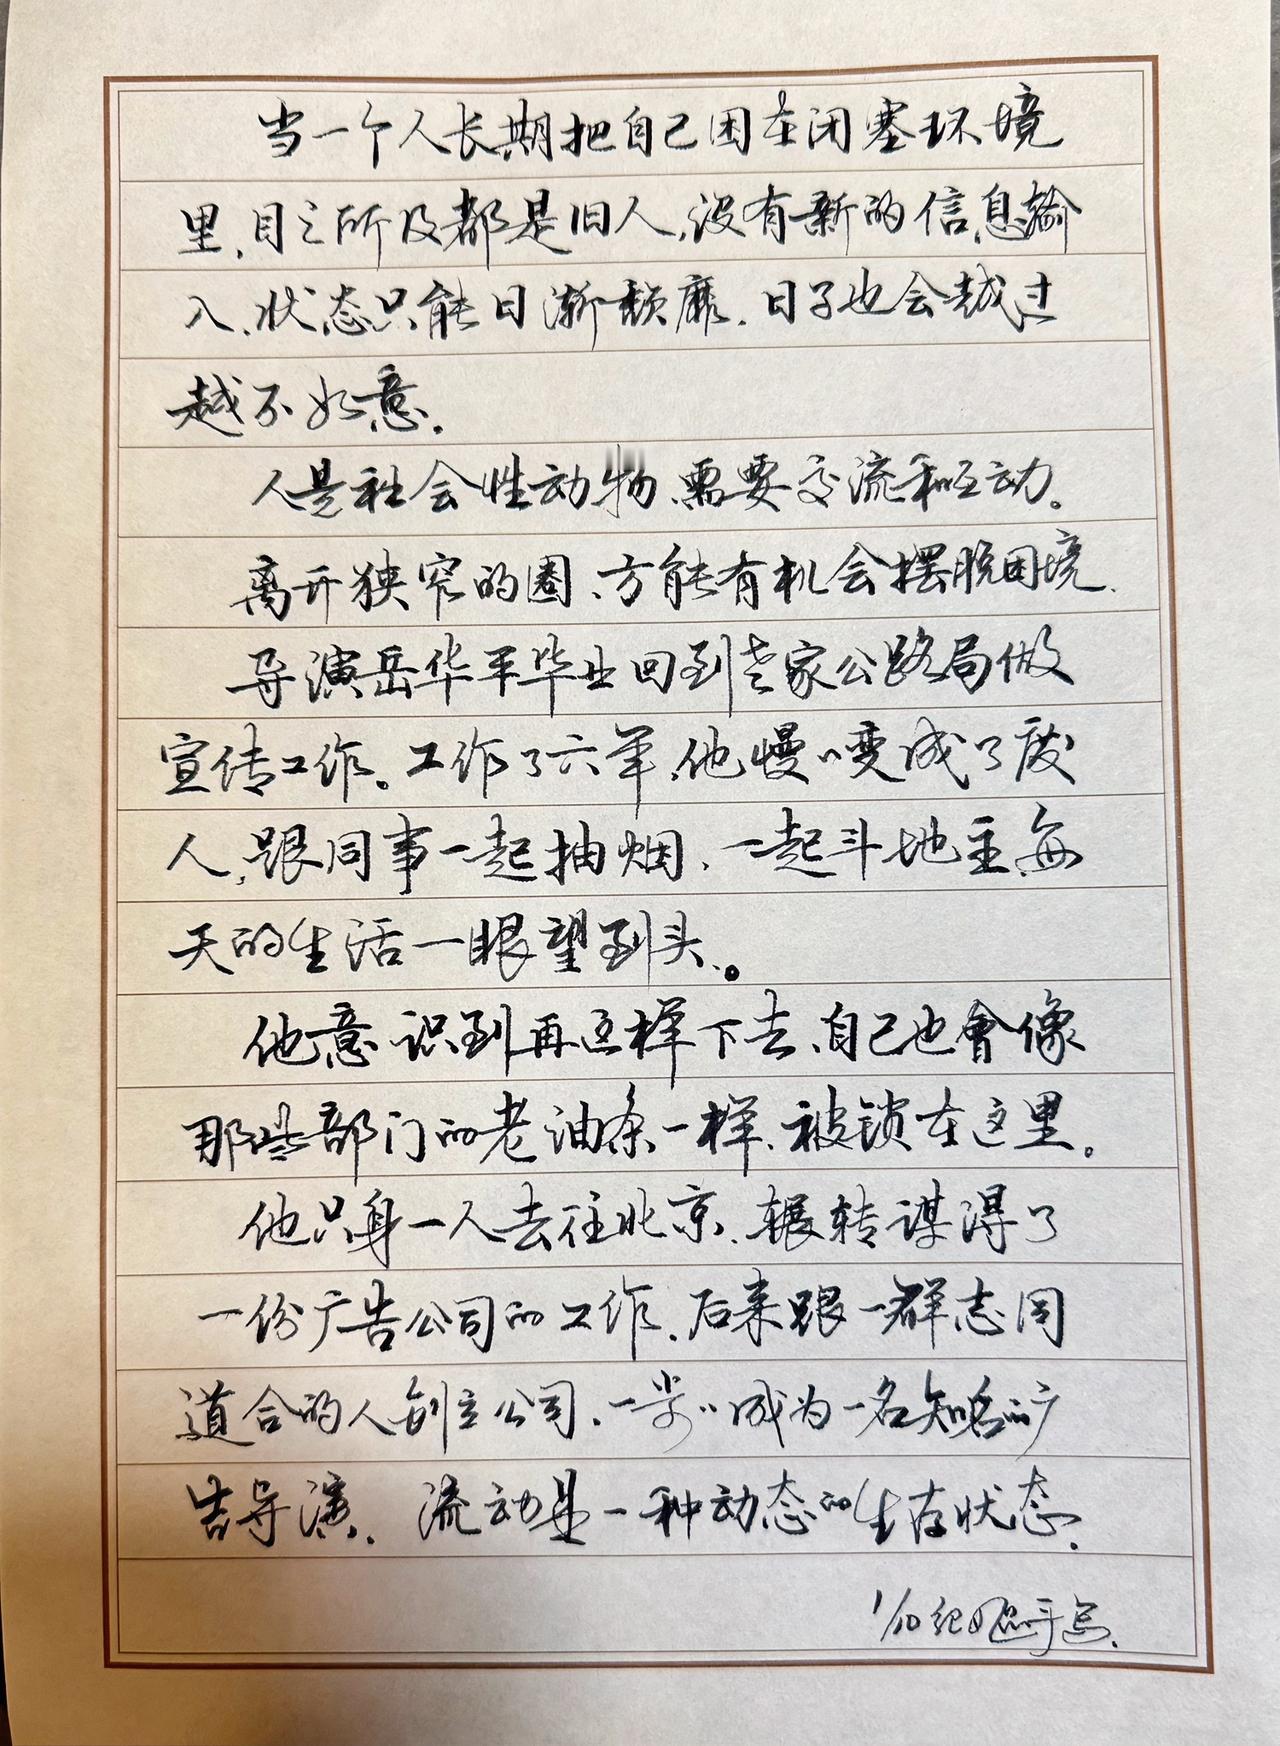 当一个人长期把自己困在闭塞环境
里,目之所及都是旧人,没有新的信息输
入,状态只能日渐颓靡,日子也会越过
越不如意.
人是社会性动物,需要交流和互动。
离开狭窄的圈、方能有机会摆脱困境.
导演岳华平毕业回到老家公路局做
宣传工作。工作了六年,他慢〻变成了废
人,跟同事一起抽烟,一起斗地主,每
天的生活一眼望到头。
他意识到再这样下去,自己也會像
那些部门的老油条一样,被锁在这里。
他只身一人去往北京,辗转谋得了
一份广告公司的工作,后来跟一群志同
道合的人创立公司,一步〻成为一名知名的广
告导演. 流动是一种动态的生存状态.
1/10 手写.